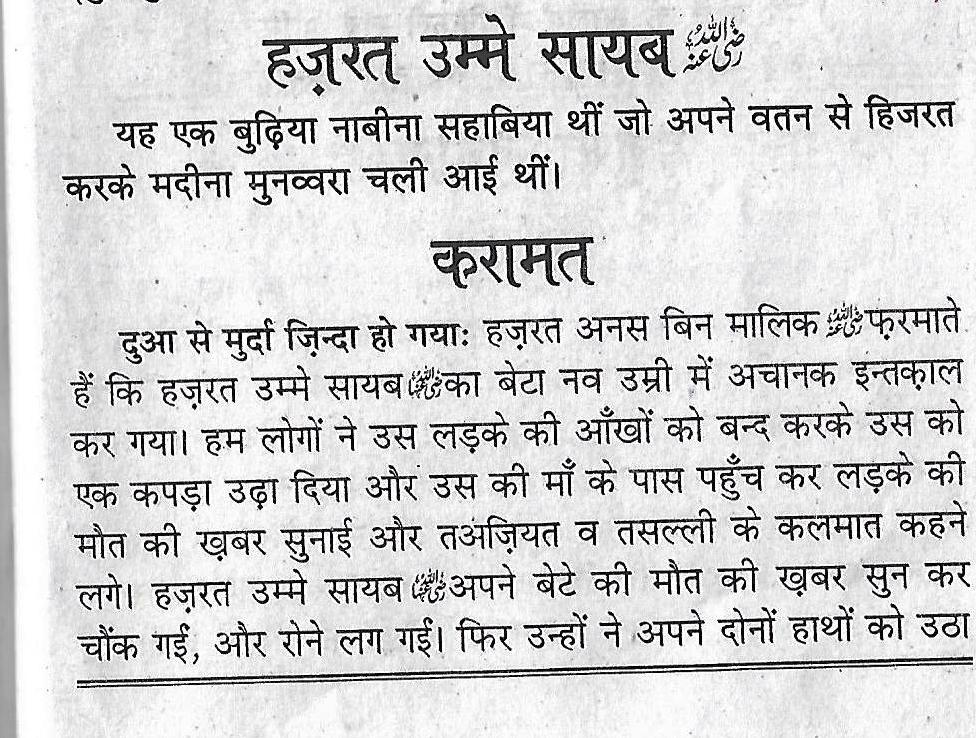 हज़रत उम्मे सायब رضی اللہ عنہ
यह एक बुढ़िया नाबीना सहाबिया थीं जो अपने वतन से हिजरत
करके मदीना मुनव्वरा चली आई थीं।
करामत
दुआ से मुर्दा ज़िन्दा हो गयाः हज़रत अनस बिन मालिक رضی اللہ عنہ फ़रमाते
हैं कि हज़रत उम्मे सायब رضی اللہ عنہا का बेटा नव उम्री में अचानक इन्तक़ाल
कर गया। हम लोगों ने उस लड़के की आँखों को बन्द करके उस को
एक कपड़ा उढ़ा दिया और उस की माँ के पास पहुँच कर लड़के की
मौत की ख़बर सुनाई और तअज़ियत व तसल्ली के कलमात कहने
लगे। हज़रत उम्मे सायब رضی اللہ عنہا अपने बेटे की मौत की ख़बर सुन कर
चौंक गईं, और रोने लग गईं। फिर उन्हों ने अपने दोनों हाथों को उठा